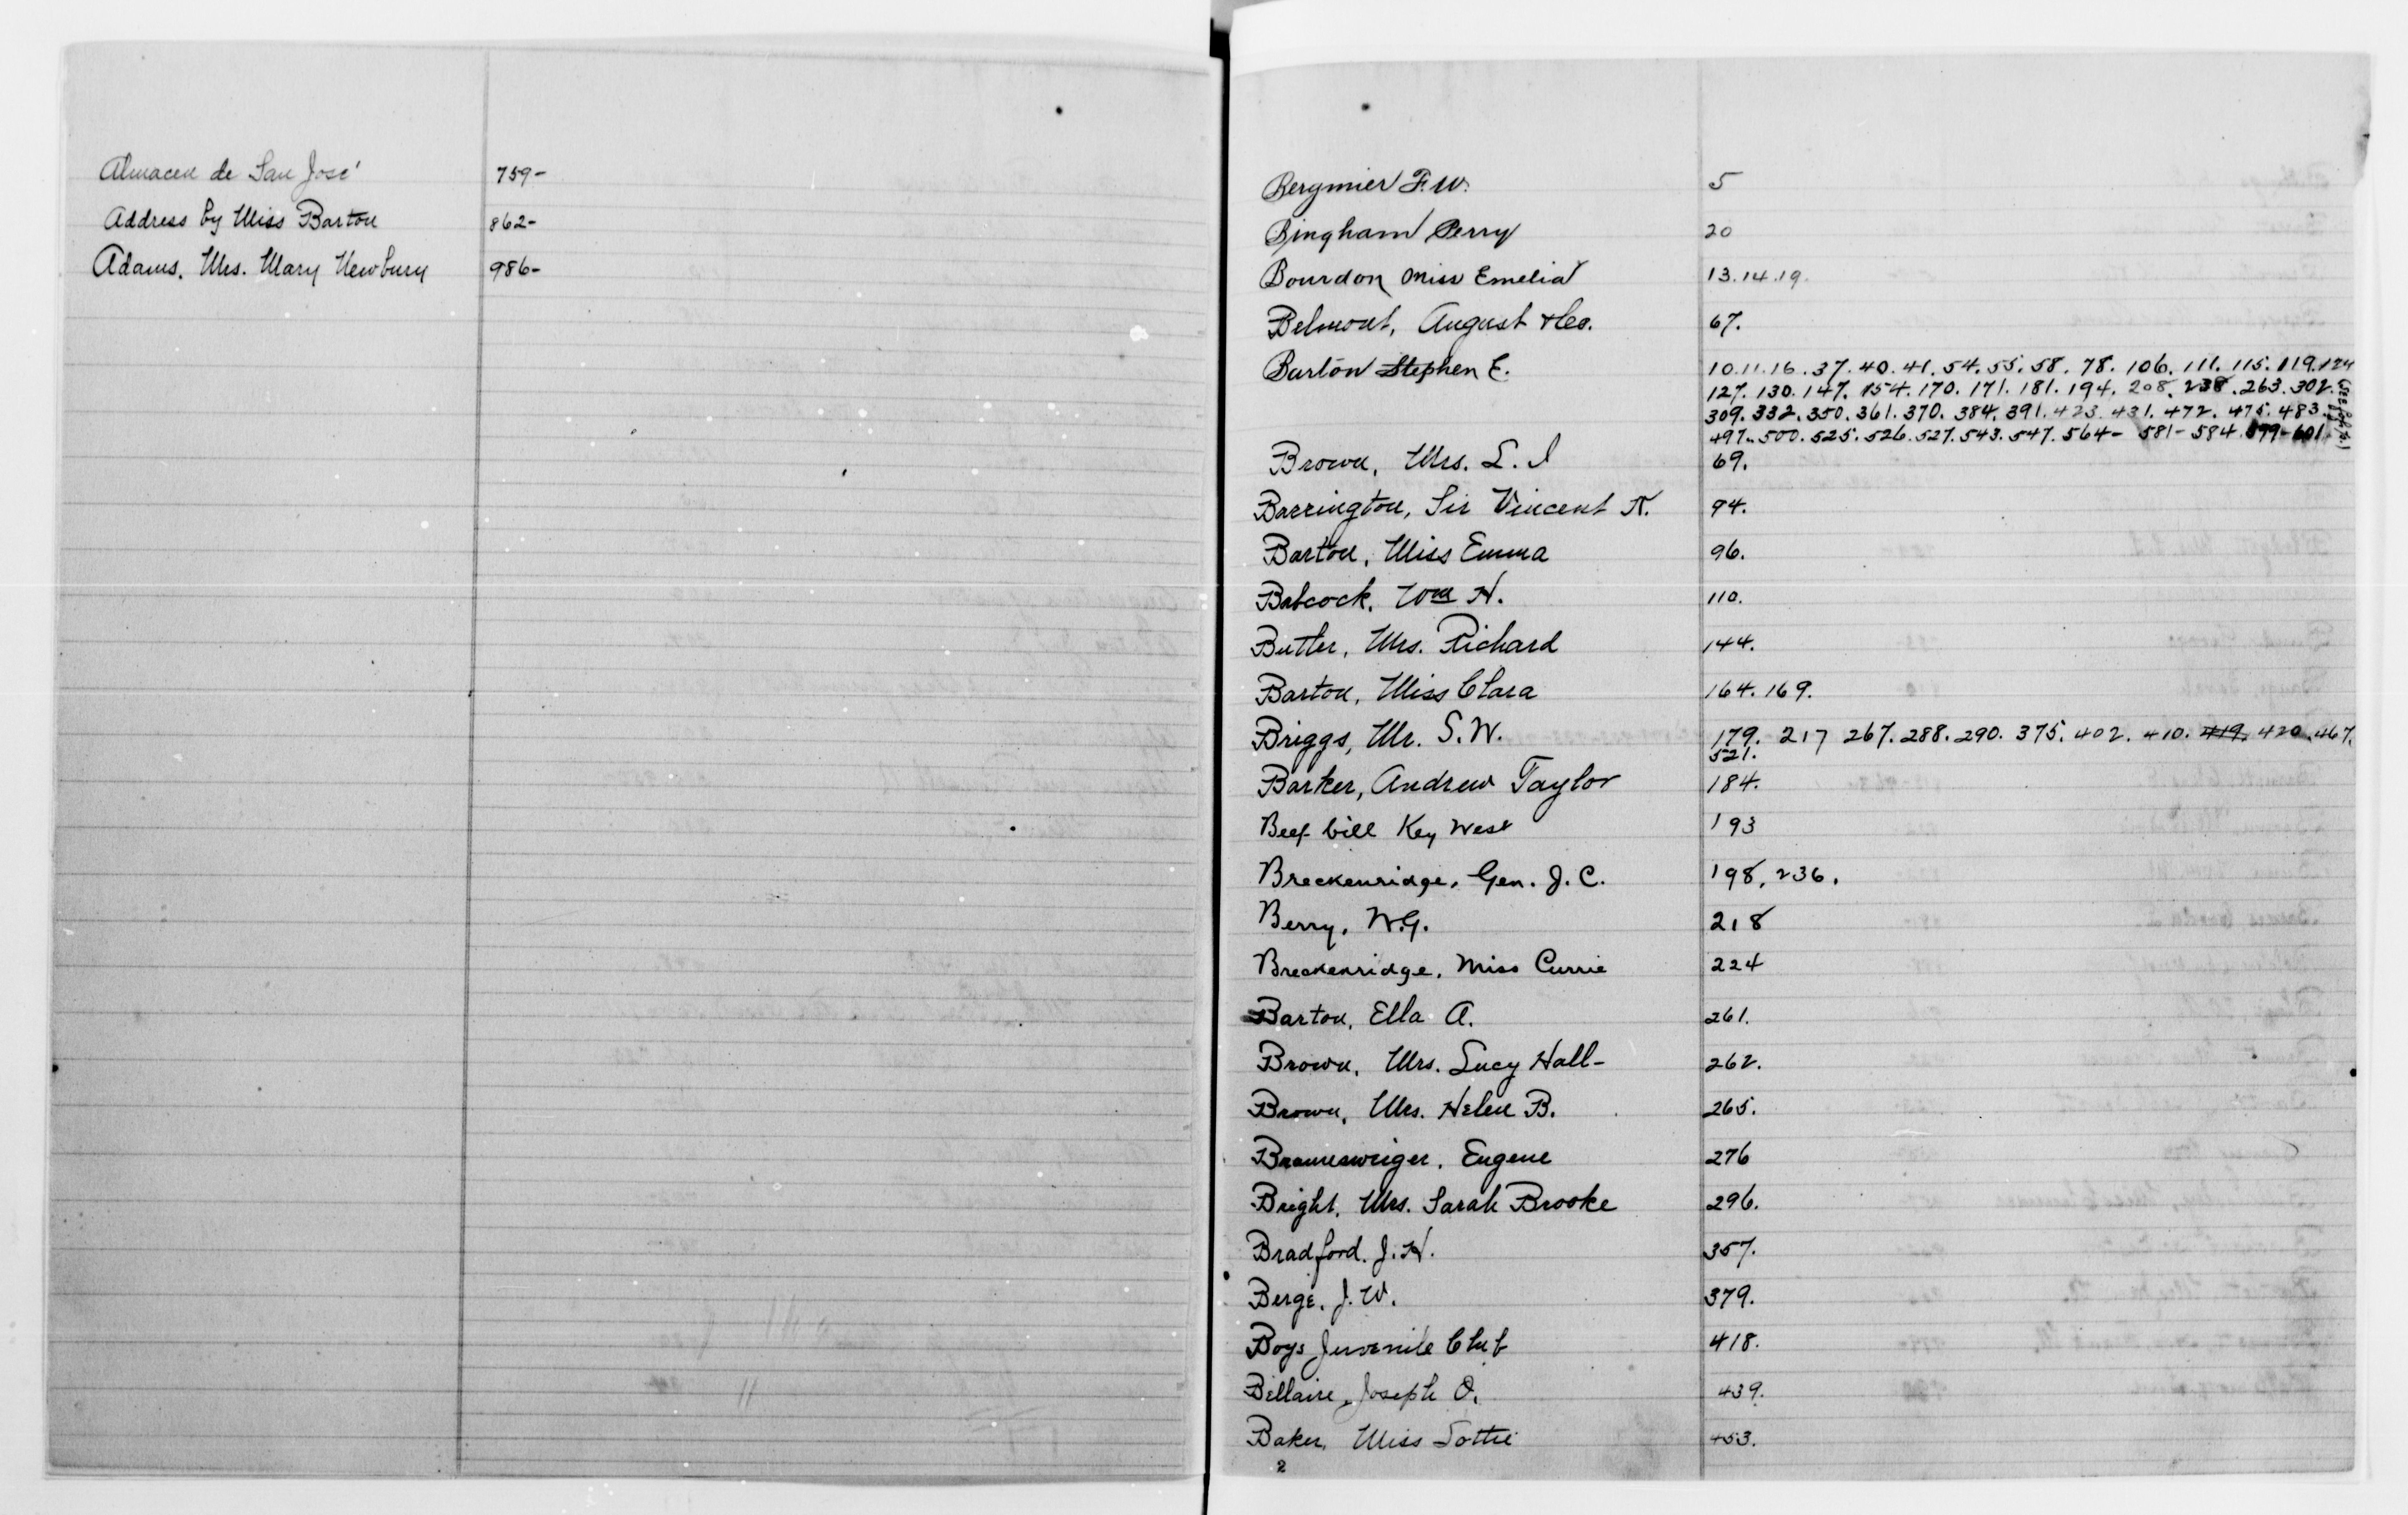 Almacen de San José 759-
Address by Miss Barton 862-
Adams. Mrs. Mary Newbury 986-
Bergmier F. W. 5
Bingham Perry 20
Bourdon Miss Emelia 13.14.19.
Belmont, August & Co. 67.
Barton Stephen E. 10.11.16.37.40.41.54.55.58.78.106.111.115.119.124
127.130.147.154.170.171.181.194.208.238.263.302.
309.332.350.361.370.384.391.423.431.472.475.483.
497.500.525.526.527.543.547.564- 581-584.599-601
Brown, Mrs. L. I 69.
Barrington, Sir Vincent K. 94.
Barton, Miss Emma 96.
Babcock, Wm H. 110.
Butler, Mrs. Richard 144.
Barton, Miss Clara 164.169.
Briggs, Mr. S.W. 179. 217 267.288.290.375.402.410.419.420.467.
521.
Barker, Andrew Taylor 184.
Beef bill Key West 193
Breckenridge, Gen. J. C. 198, 236.
Berry, W.G. 218
Breckenridge, Miss Currie 224
Barton, Ella A. 261.
Brown, Mrs. Lucy Hall- 262.
Brown, Mrs. Helen B. 265.
Braunesweiger, Eugene 276
Bright, Mrs. Sarah Brooke 296.
Bradford. J. H. 357.
Berge, J. W. 379.
Boys Juvenile Club 418.
Bellaire, Joseph O. 439.
Baker, Miss Lottie 453.
2